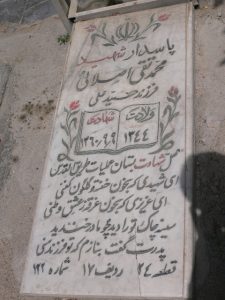 پاسدار شهید
محمد تقی اصلانی
فرزند حسینعلی
ولادت شهادت
۱۳۴۴ ۱۳۶۰/۹/۹
محل شهادت بستان عملیات طریق القدس
ای شهیدی که بخون خفته و گلگون کفنی
ای عزیزی که بخون غرقه ز عشق وطنی
سینه چاک تو را دید چو مادر خندید
پدرت گفت بنازم که تو فرزند منی
قطعه ۲۴ ردیف ۱۷ شماره ۱۲۲